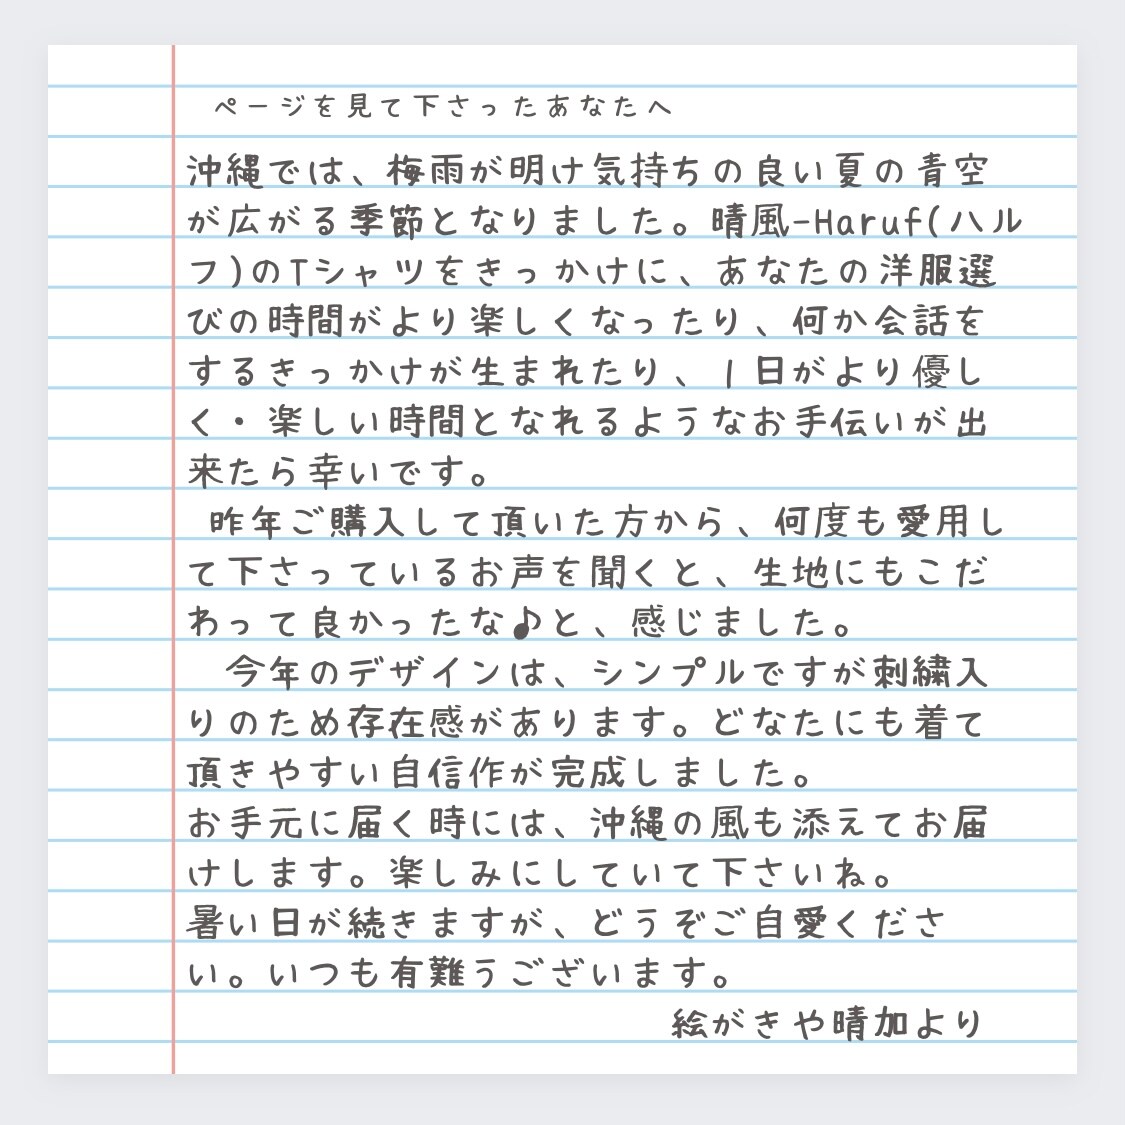 ページを見て下さったあなたへ
沖縄では、梅雨が明け気持ちの良い夏の青空
が広がる季節となりました。晴風-Haruf(ハル
フ)のTシャツをきっかけに、あなたの洋服選
びの時間がより楽しくなったり、何か会話を
するきっかけが生まれたり、1日がより優し
く・楽しい時間となれるようなお手伝いが出
来たら幸いです。
昨年ご購入して頂いた方から、何度も愛用し
て下さっているお声を聞くと、生地にもこだ
わって良かったな♪と、感じました。
今年のデザインは、シンプルですが刺繍入
りのため存在感があります。どなたにも着て
頂きやすい自信作が完成しました。
お手元に届く時には、沖縄の風も添えてお届
けします。楽しみにしていて下さいね。
暑い日が続きますが、どうぞご自愛くださ
い。いつも有難うございます。
絵がきや晴加より